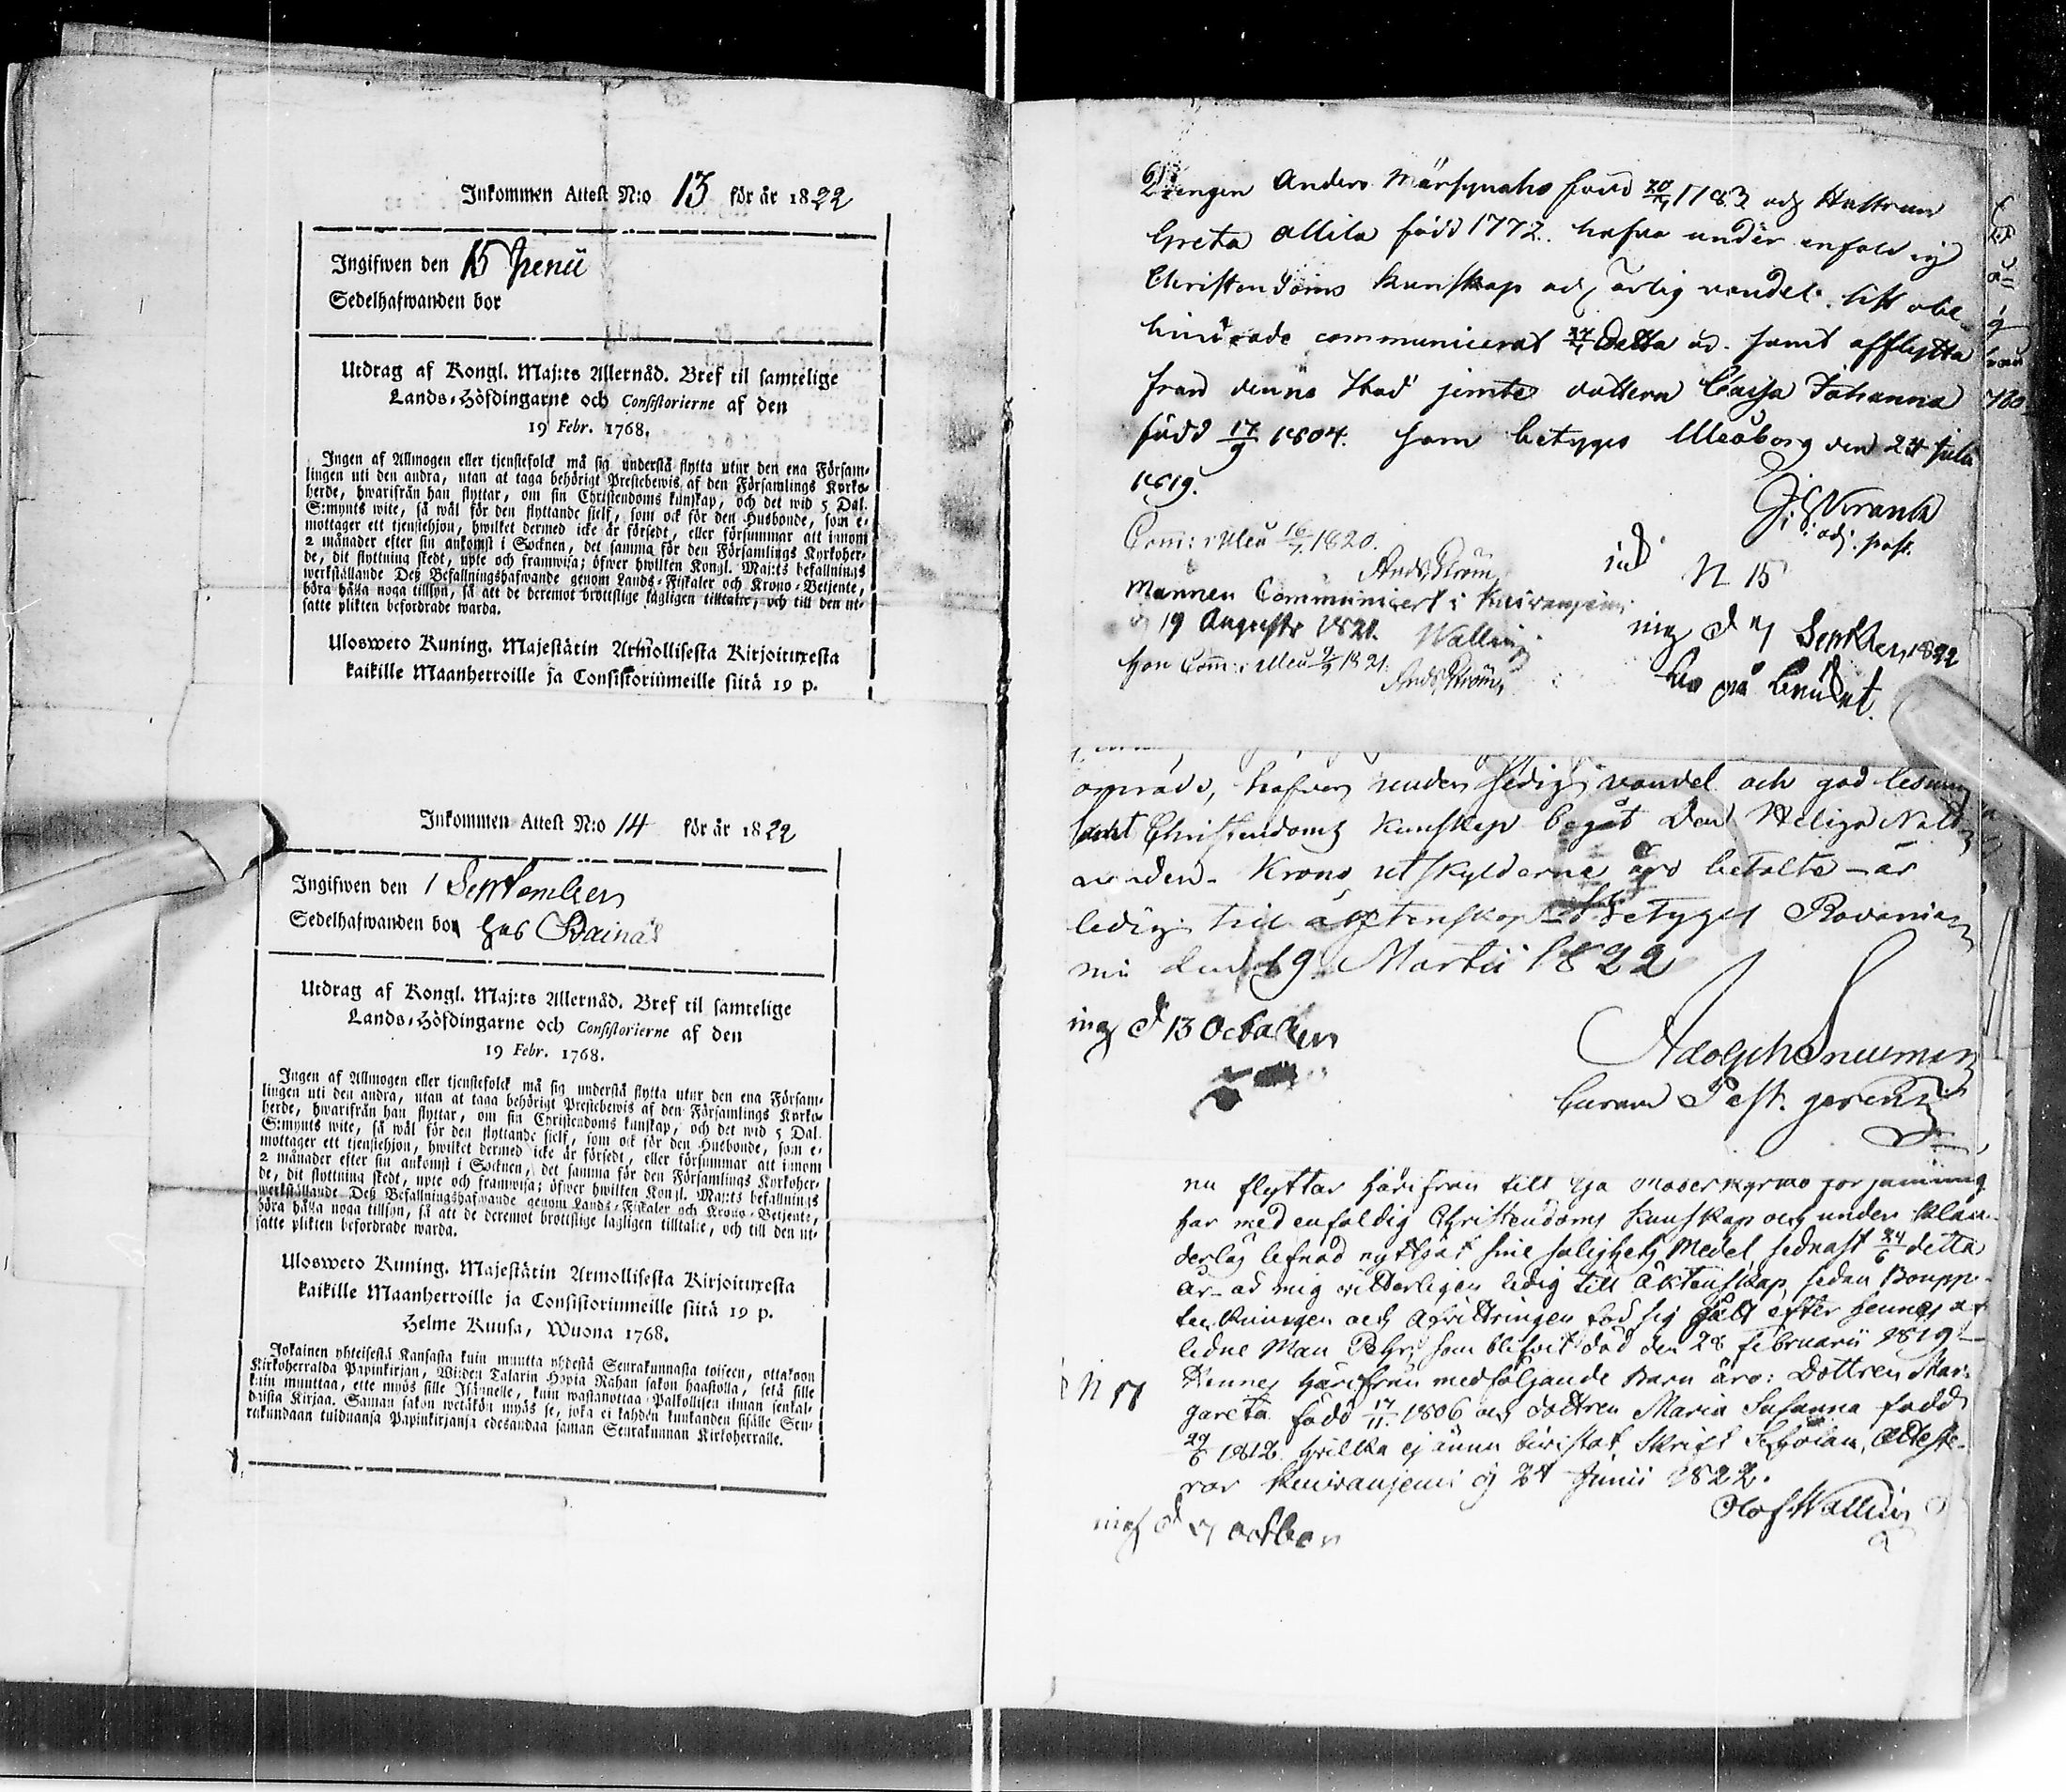 Inkommen Attest N:o 13 för år 1822
Ingifwen den 15 Junii
Sedelhafwanden bor
Utdrag af Kongl. Maj:ts Allernåd. Bref til samtelige
Lands-Höfdingarne och Consistorierne af den
19 Febr. 1768.
Ingen af Allmogen eller tjenstefolck må sig understå flytta utur den ena Försam-
lingen uti den andra, utan at taga behörigt Prestebewis af den Församlings Kyrko-
herde, hwarifrån han flyttar, om sin Christendoms kunskap, och det wid 5 Dal.
S:mynts wite, så wäl för den flyttande sjelf, som ock för den Husbonde, som e-
mottager ett tjenstehjon, hwilket dermed icke är försedt, eller försummar att innom
2 månader efter sin ankomst i Socknen, det samma för den Församlings Kyrkoher-
de, dit flyttning skedt, upte och framwisa; öfwer hwilken Kongl. Maj:ts befallnings
werkställande Deß Befallningshafwande genom Lands-Fiskaler och Krono-Betjente,
böra hålla noga tillsyn, så att de deremot brottslige lagligen tilltalte, och till den ut-
satte plikten befordrade warda.
Ulosweto Kuning. Majestätin Armollisesta Kirjoituxesta
kaikille Maanherroille ja Consistoriumeille siitä 19 p.
Inkommen Attest N:o 14 för år 1822
Ingifwen den 1 September
Sedelhafwanden bor hos
Utdrag af Kongl. Maj:ts Allernåd. Bref til samtelige
Lands-Höfdingarne och Consistorierne af den
19 Febr. 1768.
Ingen af Allmogen eller tjenstefolck må sig understå flytta utur den ena Försam-
lingen uti den andra, utan at taga behörigt Prestebewis af den Församlings Kyrko-
herde, hwarifrån han flyttar, om sin Christendoms kunskap, och det wid 5 Dal.
S:mynts wite, så wäl för den flyttande sjelf, som ock för den Husbonde, som e-
mottager ett tjenstehjon, hwilket dermed icke är försedt, eller försummar att innom
2 månader efter sin ankomst i Socknen, det samma för den Församlings Kyrkoher-
de, dit flyttning skedt, upte och framwisa; öfwer hwilken Kongl. Maj:ts befallnings
werkställande Deß Befallningshafwande genom Lands-Fiskaler och Krono-Betjente,
böra hålla noga tillsyn, så att de deremot brottslige lagligen tilltalte, och till den ut-
satte plikten befordrade warda.
Ulosweto Kuning. Majestätin Armollisesta Kirjoituxesta
kaikille Maanherroille ja Consistoriumeille siitä 19 p.
Helme Kuusa, Wuona 1768.
Jokainen yhteisestä Kansasta kuin muutta yhdestä Seurakunnasta toiseen, ottakoon
Kirkoherralda Papinkirjan, Wiiden Talarin Hopia Rahan sakon haastolla, sekä sille
kuin muuttaa, ette myös sille Isännelle, kuin wastanottaa Palkollisen ilman senkal-
daista Kirjaa. Saman sakon wetäkön myös se, joka ei kahden kuukauden sisälle Seu-
rakundaan tulduansa Papinkirjansa edesandaa saman Seurakunnan Kirkoherralle.
Drengen Anders född 20/4 1783 och Hustrun
Greta Alila född 1772. hafva under enfaldig
Christendoms kunskap och ärlig vandel sitt obe-
hindrade communicerat detta år. samt afflytta
från denna Stad jemte dottern Caisa Johanna
född 17/9 1804. som betygas Uleåborg den 24 Julii
1819.
J: Krank
adj. past.
Com: i Uleå 16/7 1820.
Mannen Communicert i Kuivaniemi
d 19 Augusti 1821. Wallin
Hon Com: i Uleå 9/9 1821.
N 15
ing d 7 September 1822
område, hafver under sedig vandel och god läsning
samt Christendoms kunskap begåt Den Heliga Natt-
varden. Krono utskylderna äro betalte - är
ledig till äktenskap Betyget Rovanie-
mi den 19 Martii 1822
ing d 13 October
Adolph Snellman
Past. gerens
nu flyttar härifrån till
har med enfaldig Christendoms kunskap och under klan-
derlös lefnad nyttjat sine salighets Medel sednast 24/6 detta
år - ad mig vitterligen ledig till äktenskap, sedan Boupp-
teckningen och afvittringen tod sig skett efter hennes af-
ledne Man Pehr, som blifvit död den 28 Februarii 1819 -
N 17
Hennes härifrån medföljande Barn äro: Dottren Mar-
gareta född 17/11 1806 och dottren Maria Susanna född
29/6 1812 hvilka ej ännu bivistat Skrift Scholan, Atteste-
rar Kuivaniemi d 24 Junii 1822.
Olof Wallin
ing d 7 october